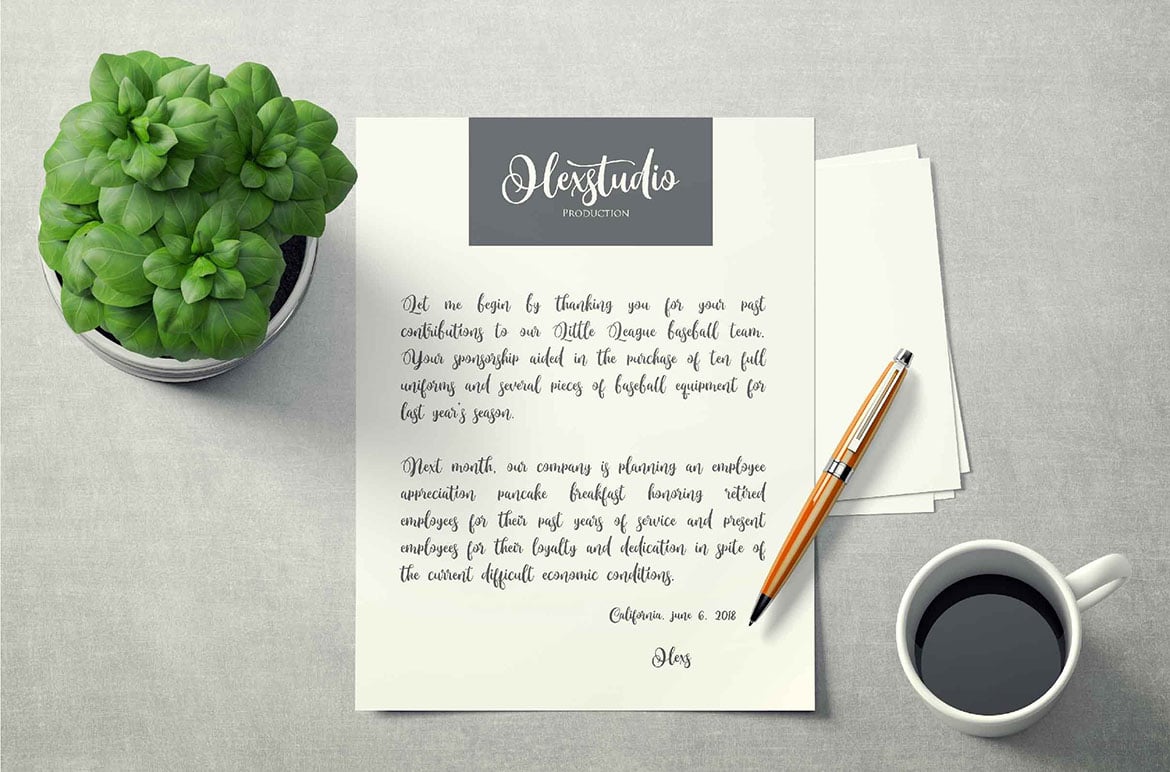 Olexstudio
PRODUCTION
Let me begin by thanking you for your past
contributions to our Little League baseball team.
Your sponsorship aided in the purchase of ten full
uniforms and several pieces of baseball equipment for
last year's season.
Next month, our company is planning an employee
appreciation pancake breakfast honoring retired
employees for their past years of service and present
employees for their loyalty and dedication in spite of
the current difficult economic conditions.
California, june 6, 2018
Olexs